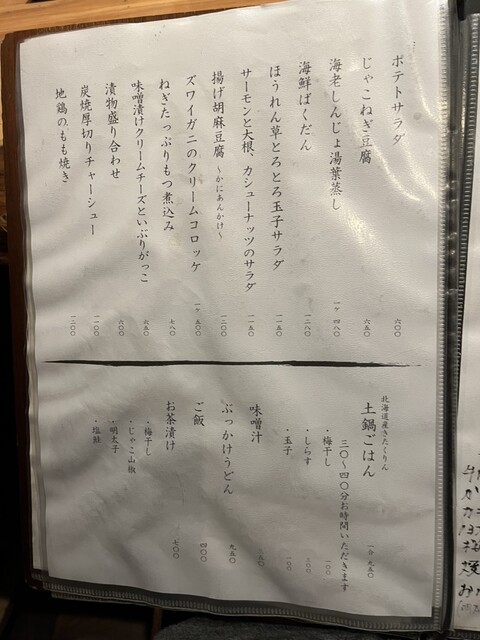 ポテトサラダ 六〇〇
じゃこねぎ豆腐 六五〇
海老しんじょ湯葉蒸し 一ケ 四八〇
海鮮ばくだん 一二八〇
ほうれん草とろとろ玉子サラダ 一一五〇
サーモンと大根、カシューナッツのサラダ 一一五〇
揚げ胡麻豆腐 ~かにあんかけ~ 一二〇〇
ズワイガニのクリームコロッケ 一ケ 五〇〇
ねぎたっぷりもつ煮込み 七八〇
味噌漬けクリームチーズといぶりがっこ 六五〇
漬物盛り合わせ 六〇〇
炭焼厚切りチャーシュー 一一〇〇
地鶏のもも焼き 一二〇〇
北海道産きたくりん
土鍋ごはん 一合 九五〇
三〇~四〇分お時間いただきます
・梅干し 一〇〇
・しらす 二〇〇
・玉子 一〇〇
味噌汁 三五〇
ぶっかけうどん 九五〇
ご飯 四〇〇
お茶漬け 七〇〇
・梅干し
・じゃこ山椒
・明太子
・塩鮭